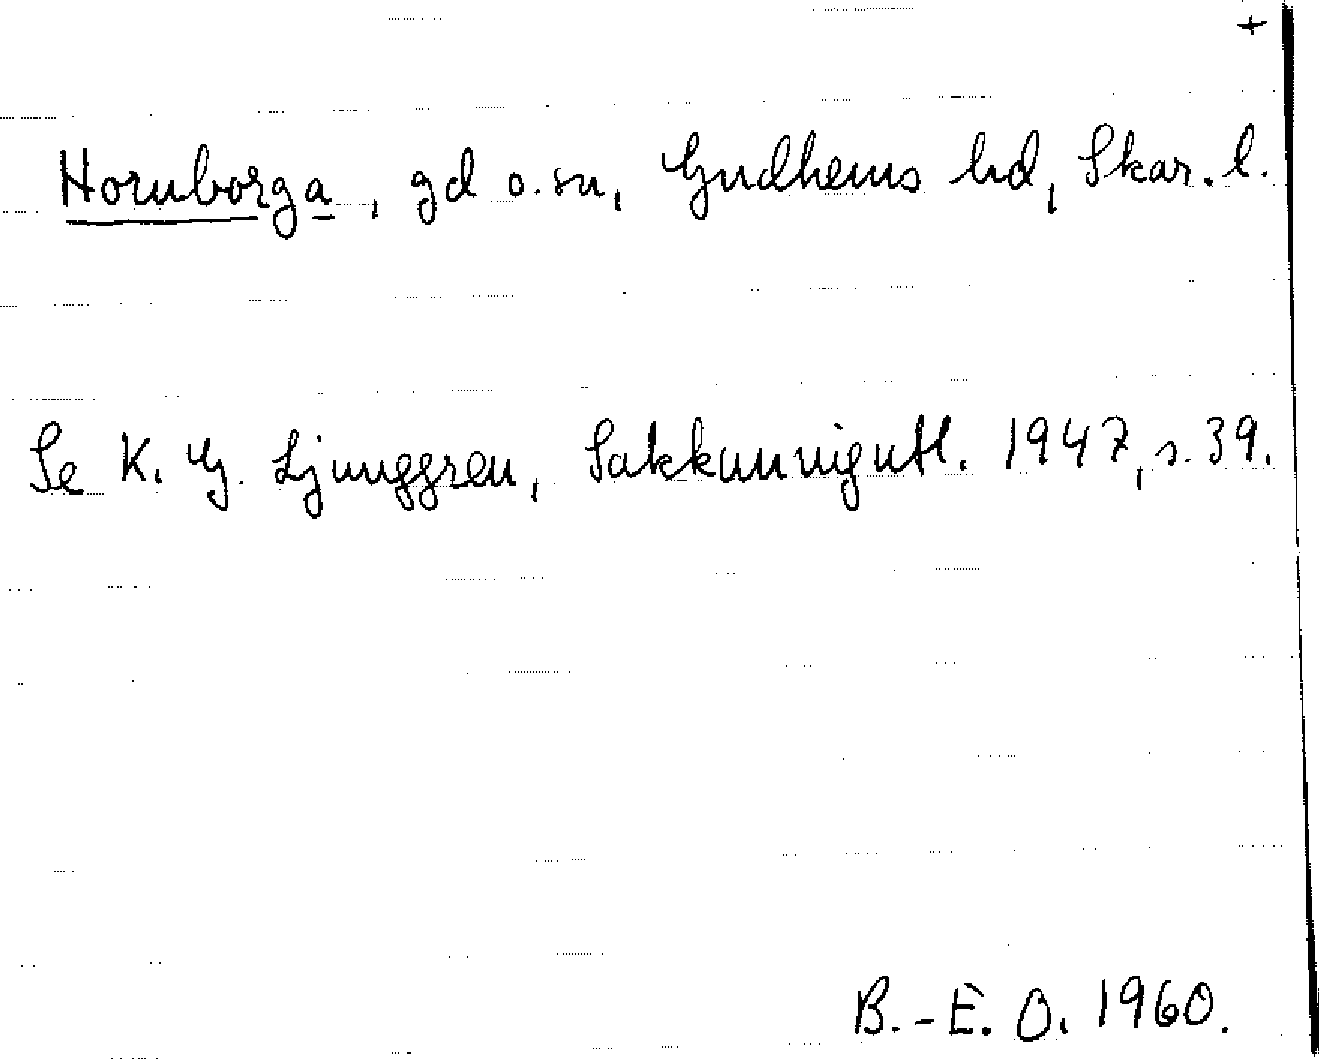 +
Hornborga, gd o. sn, Gudhems hd, Skar. l.
Se K. G. Ljunggren, Sakkunnigutl. 1947, s. 39.
B.-E. O. 1960.